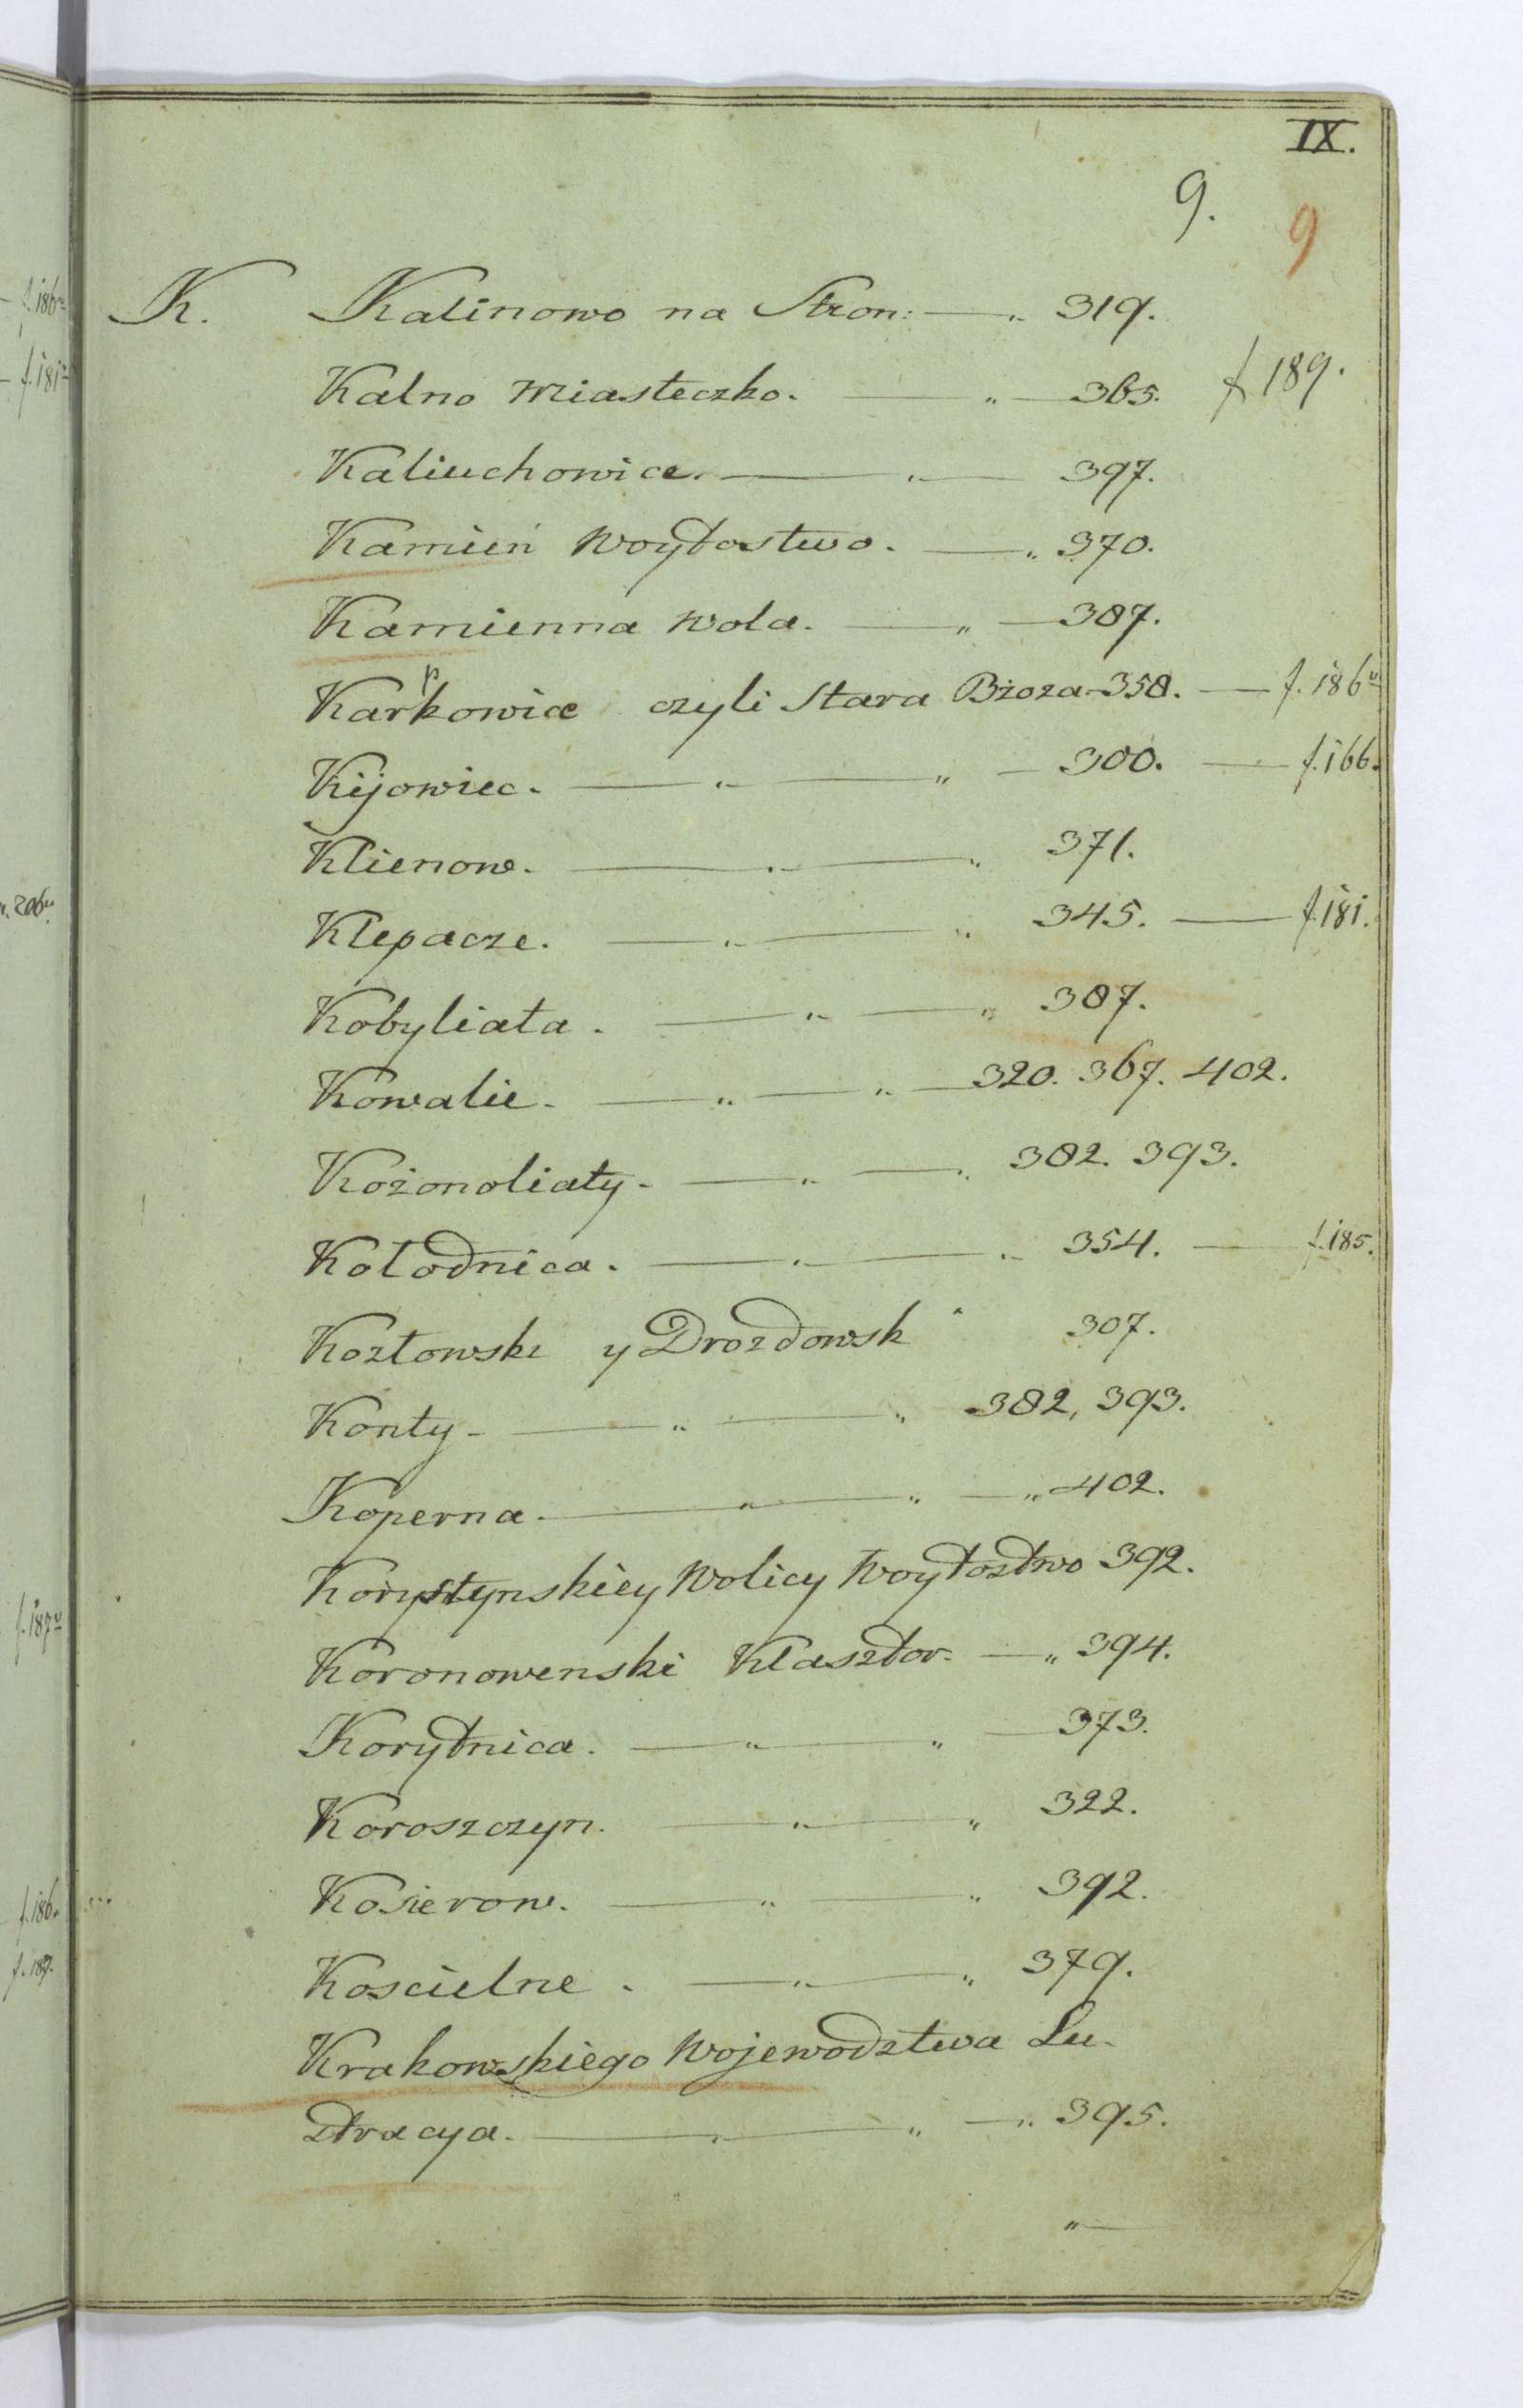 IX.
9. 9
K. Kalinowo na Stron: — „ 319.
Kalno Miasteczko. — „ — 365. f 189.
Kaliuchowice. — „ — 397.
Kamień Woytostwo. — „ 370.
Kamienna Wola. — „ — 387.
Karpkowice czyli Stara Bżoza — 358. — f. 186v
Kijowiec. — „ — „ — 300. — f. 166.
Klienow. — „ — „ 371.
Klepacze. — „ — „ 345. — f. 181.
Kobyliata. — „ — „ 387.
Kowalie. — „ — „ — 320. 367. 402.
Kożonoliaty. — „ — „ 382. 393.
Kołodnica. — „ — „ 354. — f. 185.
Kozłowski y Drozdowsk 307.
Konty — „ — „ 382, 393.
Koperna. — „ — „ — „ 402.
Korystynskiey Wolicy Woytostwo 392.
Koronowenski Klasztor. — „ 394.
Korytnica. — „ — „ — 373.
Koroszczyn. — „ — „ 322.
Kosierow. — „ — „ 392.
Koscielne. — „ — „ 379.
Krakowskiego Wojewodztwa Lu-
stracya. — „ — „ — „ 395.
„ —
f. 186v
f. 181v
206v
f. 187v
f. 186.
f. 187.